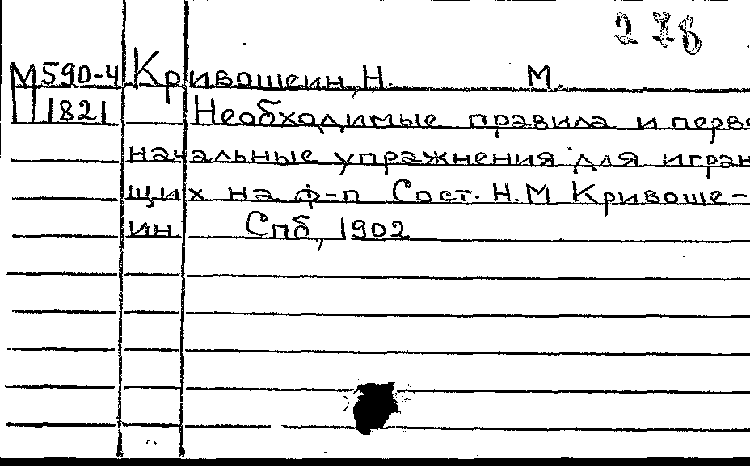 278
М590-4 Кривошеин, Н. М.
1821 Необходимые правила и перво
начальные упражнения для играю
щих на ф-п Сост. Н.М Кривоше-
ин Спб, 1902